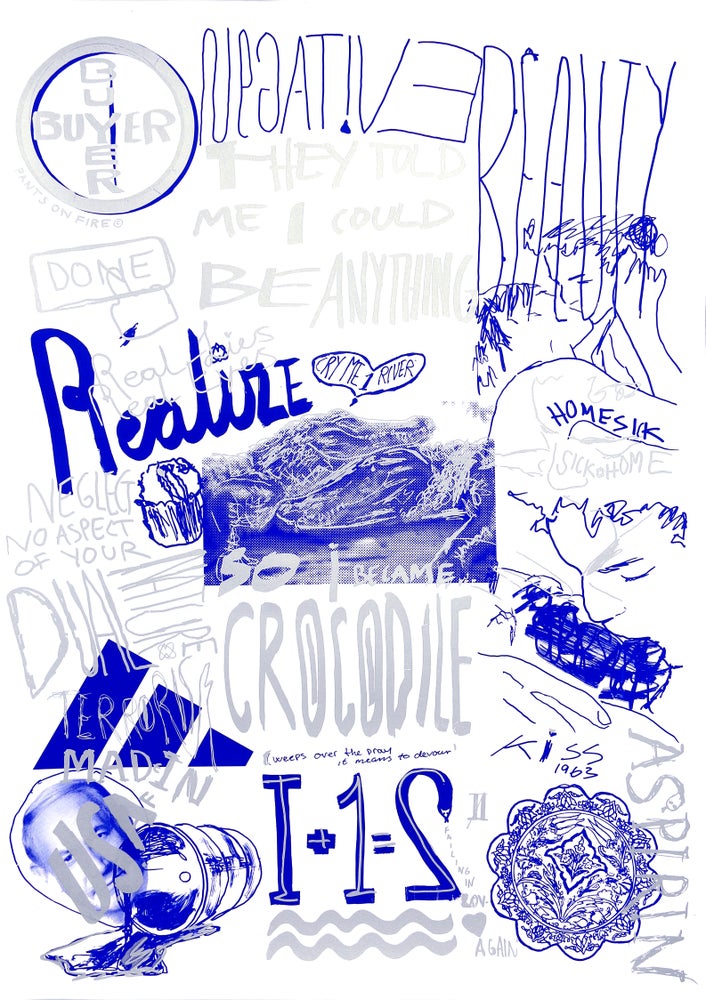 BUYER
BUYER
PANTS ON FIRE ©
NEGATIVE
BEAUTY
THEY TOLD
ME I COULD
BE ANYTHING
DONE
Real lies
Real eyes
Realize
CRY ME A RIVER
HOMESICK
SICK OF HOME
NEGLECT
NO ASPECT
OF YOUR
DUAL
NATURE
SO I BECAME
CROCODILE
TERRORISM
(weeps over the pray
it means to devour)
KISS
1963
MAD IN
USA
1+1=2
II
FAILING IN
LOV
AGAIN
ASPIRIN